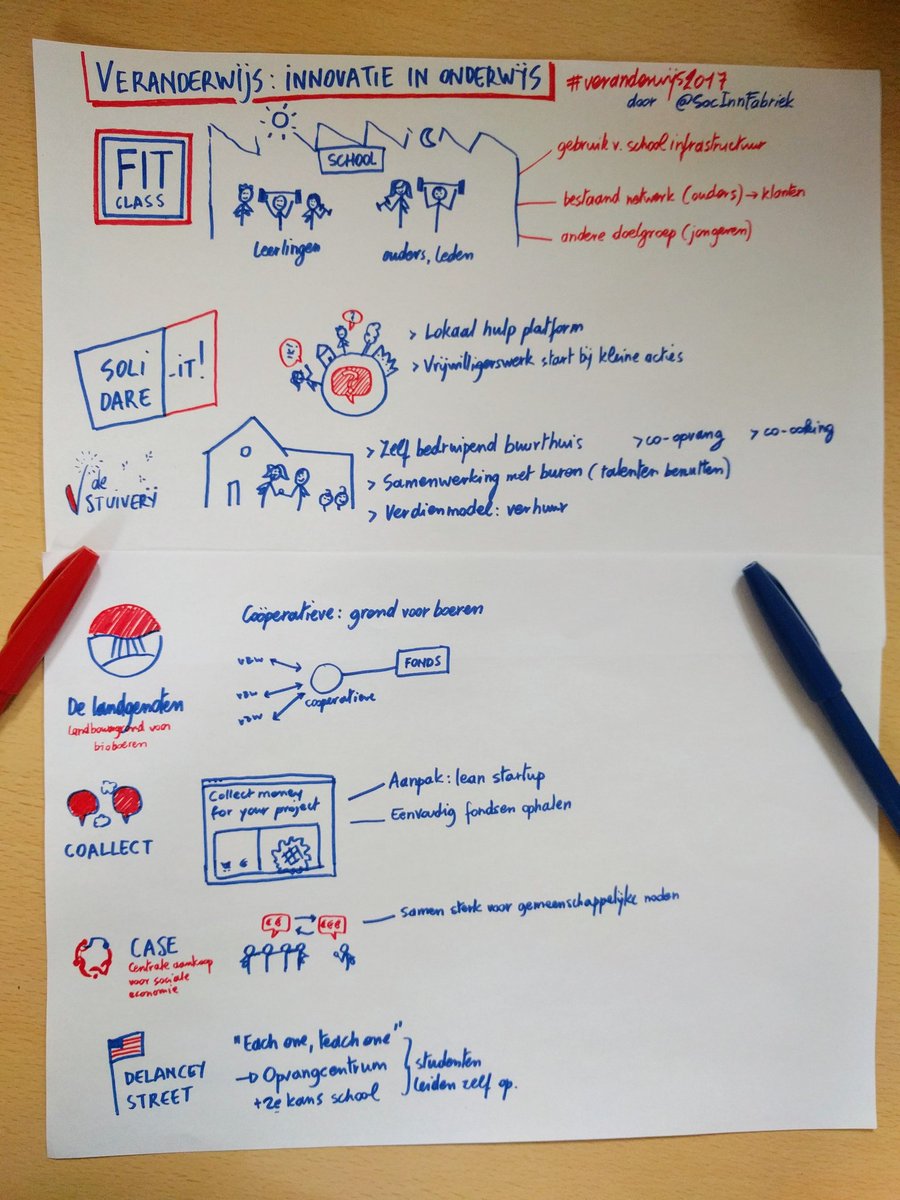 VERANDERWIJS: INNOVATIE IN ONDERWIJS
#veranderwijs2017
door @SocInnFabriek
FIT
CLASS
SCHOOL
leerlingen
ouders, leden
gebruik v. school infrastructuur
bestaand netwerk (ouders) → klanten
andere doelgroep (jongeren)
SOLI
DARE
-iT!
> Lokaal hulp platform
> Vrijwilligerswerk start bij kleine acties
de
STUIVERIJ
> Zelf bedruipend buurthuis > co-opvang > co-ooking
> Samenwerking met buren (talenten benutten)
> Verdienmodel: verhuur
De landgenoten
Landbouwgrond voor
bioboeren
Coöperatieve: grond voor boeren
VZW
VZW
VZW
coöperatieve
FONDS
COALLECT
Collect money
for your project
€
Aanpak: lean startup
Eenvoudig fondsen ophalen
CASE
Centrale aankoop
voor sociale
economie
€€
€€€
Samen sterk voor gemeenschappelijke noden
DELANCEY
STREET
"Each one, teach one"
→ Opvangcentrum
+ 2e kans school
studenten
leiden zelf op.